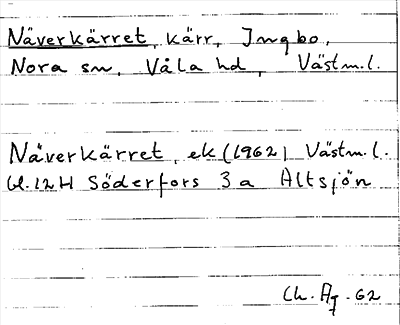 Näverkärret, kärr, Ingbo,
Nora sn, Våla hd, Västm.l.
Näverkärret, ek (1962) Västm.l.
bl.12H Söderfors 3a Altsjön
Ch. Ag. 62